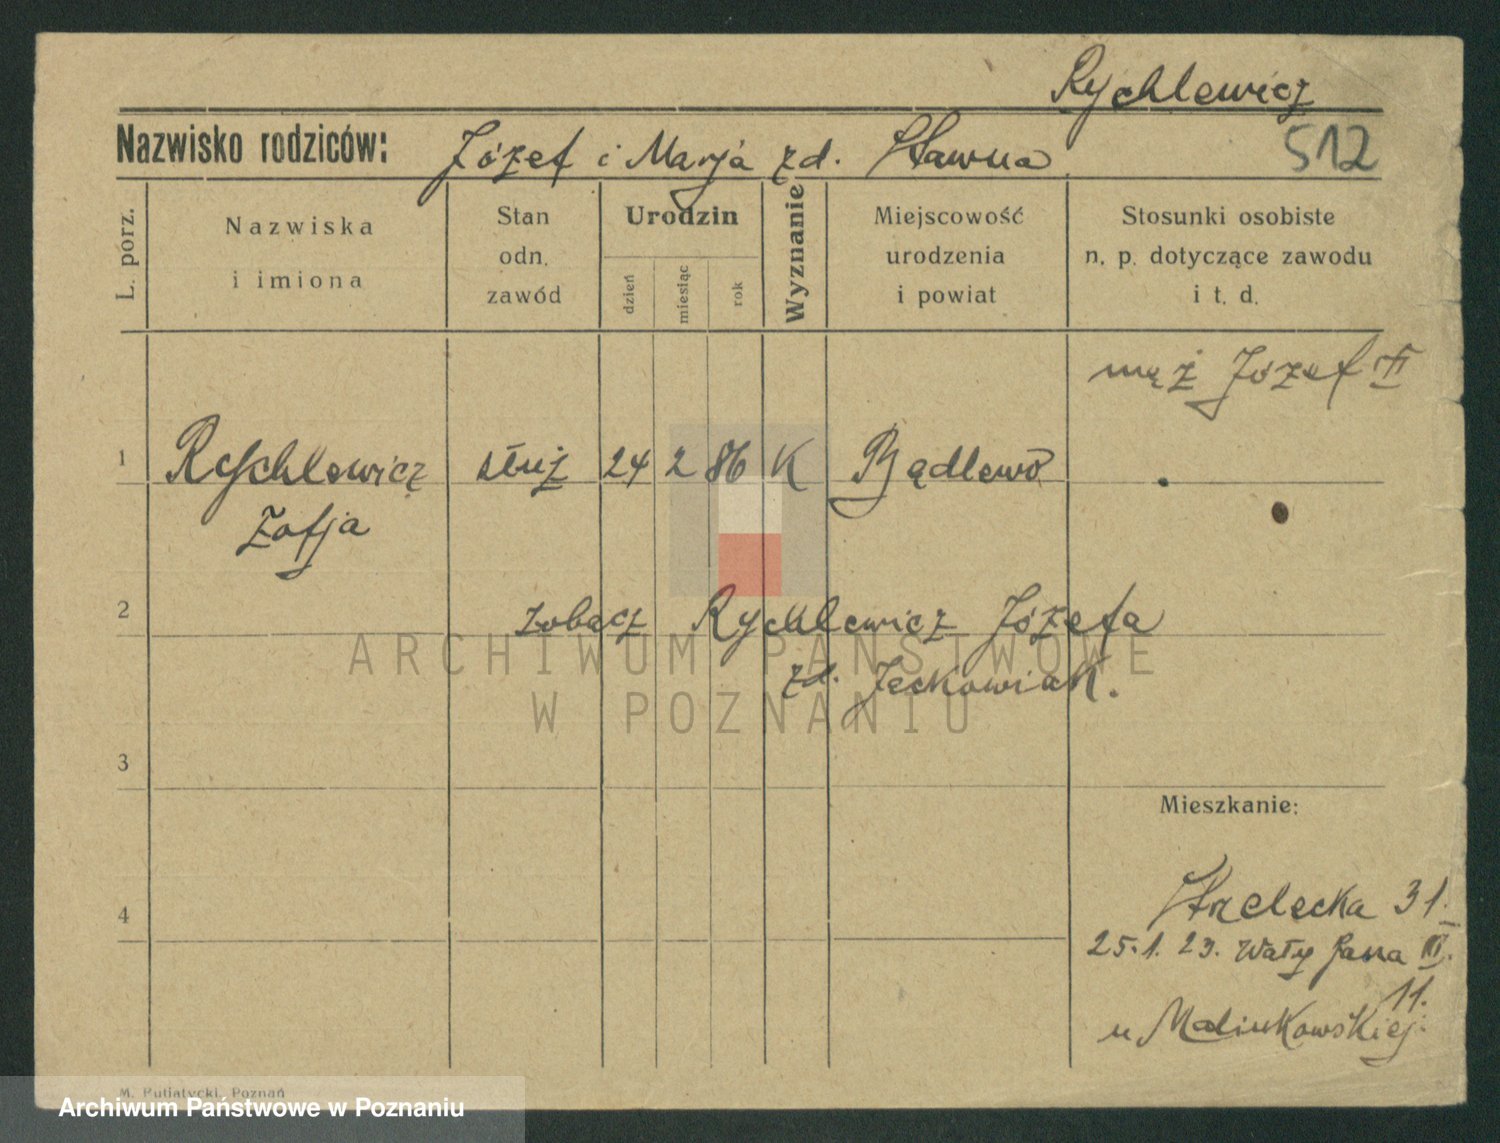 Rychlewicz
Nazwisko rodziców: Józef i Marja zd. Sławna
512
L. porz.
Nazwiska i imiona
Stan odn. zawód
Urodzin
dzień
miesiąc
rok
Wyznanie
Miejscowość urodzenia i powiat
Stosunki osobiste n. p. dotyczące zawodu i t. d.
mąż Józef II
1 Rychlewicz służ 24 2 86 K Bądlewo
Zofja
2 zobacz Rychlewicz Józefa
zd. Jęckowiak.
3
Mieszkanie:
4
Strzelecka 31.
25.1.23. Wały Jana III.
11.
u Malinkowskiej
ARCHIWUM PAŃSTWOWE
W POZNANIU
M. Putiatycki, Poznań
Archiwum Państwowe w Poznaniu